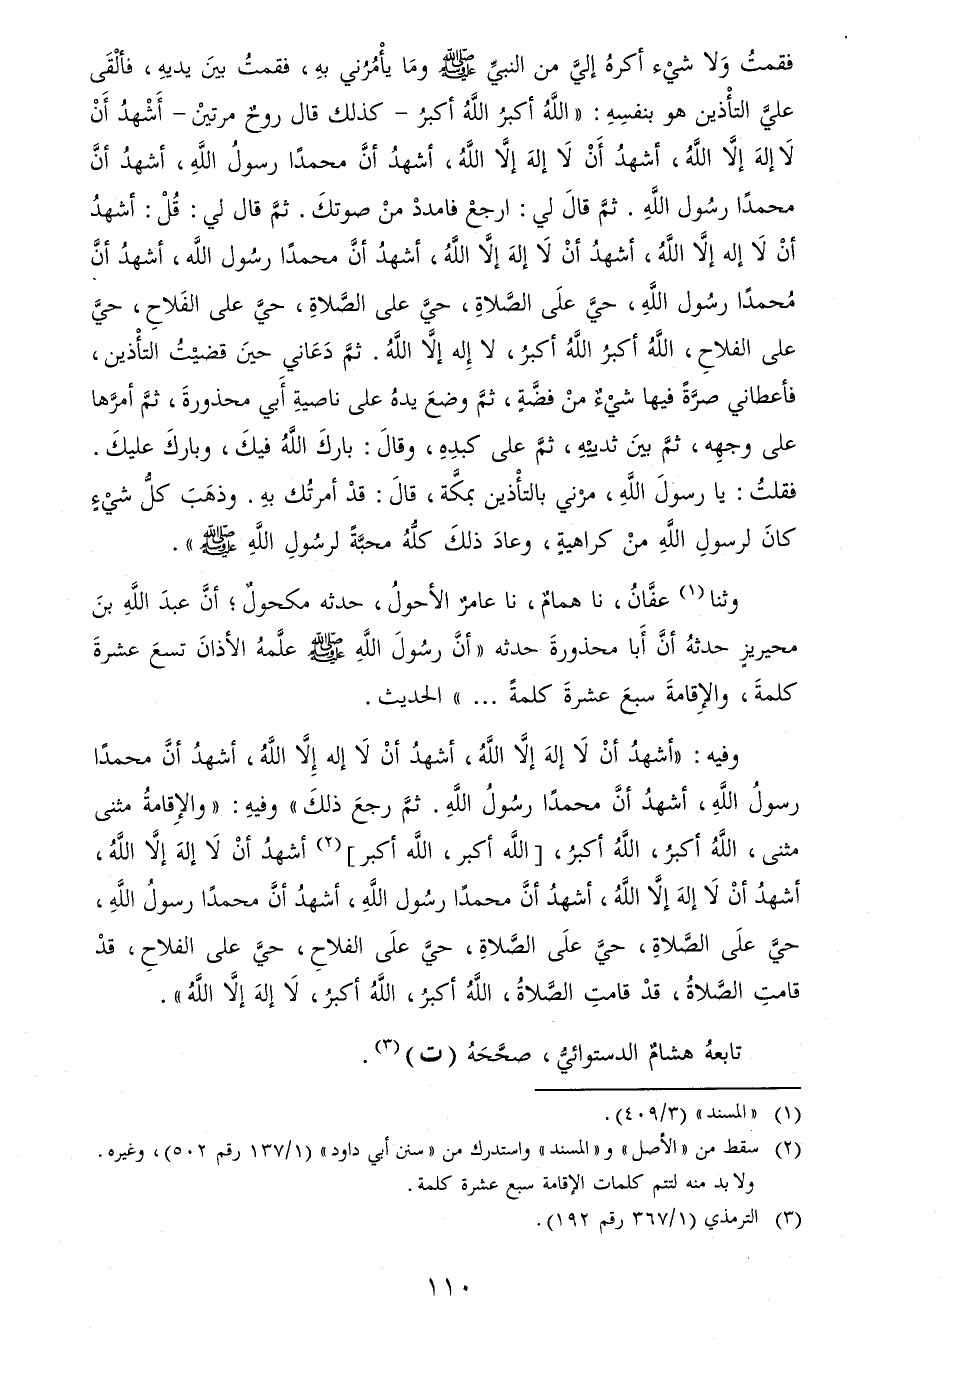 فقمتُ وَلا شيْء أكرهُ إليَّ من النبيِّ ﷺ ومَا يأْمُرُني بهِ ، فقمتُ بينَ يديهِ ، فألْقَى
عليَّ التأْذين هو بنفسِهِ : « اللَّهُ أكبرُ اللَّهُ أكبرُ – كذلك قال روحٌ مرتينْ – أَشْهدُ أَنْ
لَا إلهَ إلَّا اللَّهُ ، أشهدُ أَنْ لَا إلهَ إلَّا اللَّهُ ، أشهدُ أنَّ محمدًا رسولُ اللَّهِ ، أشهدُ أنَّ
محمدًا رسُول اللَّهِ . ثمَّ قالَ لي : ارجعْ فامددْ منْ صوتكَ . ثمَّ قال لي : قُلْ : أشهدُ
أنْ لَا إله إلَّا اللَّهُ ، أشهدُ أنْ لَا إلهَ إلَّا اللَّهُ ، أشهدُ أنَّ محمدًا رسُول اللَّه ، أشهدُ أنَّ
مُحمدًا رسُول اللَّهِ ، حيَّ علَى الصَّلاةِ ، حيَّ على الصَّلاةِ ، حيَّ على الفَلاحِ ، حيَّ
على الفلاحِ ، اللَّهُ أكبرُ اللَّهُ أكبرُ ، لا إِله إلَّا اللَّهُ . ثمَّ دَعَاني حينَ قضيْتُ التأْذين ،
فأعطاني صرَّةً فيها شيْءٌ منْ فضَّةٍ ، ثمَّ وضعَ يدهُ على ناصيةِ أَبي محذورةَ ، ثمَّ أمرَّها
على وجهِه ، ثمَّ بينَ ثدييْهِ ، ثمَّ على كبدِهِ ، وقالَ : باركَ اللَّهُ فيكَ ، وباركَ عليكَ .
فقلتُ : يا رسولَ اللَّهِ ، مرْني بالتأْذين بمكَّة ، قالَ : قدْ أمرتُك بهِ . وذهَبَ كلُّ شيْءٍ
كانَ لرسولِ اللَّهِ منْ كراهيةٍ ، وعادَ ذلكَ كلُّهُ محبَّةً لرسُولِ اللَّهِ ﷺ » .
وثنا (١) عفَّانُ ، نا همامٌ ، نا عامرٌ الأحولُ ، حدثه مكحولٌ ؛ أنَّ عبدَ اللَّهِ بنَ
محيريزٍ حدثهُ أنَّ أَبا محذورةَ حدثه « أنَّ رسُولَ اللَّهِ ﷺ علَّمهُ الأذانَ تسعَ عشرةَ
كلمةَ ، والإِقامةَ سبعَ عشرةَ كلمةً ... » الحديث .
وفيه : «أشهدُ أنْ لَا إلهَ إلَّا اللَّهُ ، أشهدُ أنْ لَا إله إِلَّا اللَّهُ ، أشهدُ أنَّ محمدًا
رسولُ اللَّهِ ، أشهدُ أنَّ محمدًا رسُولُ اللَّهِ . ثمَّ رجعَ ذلكَ » وفيهِ : « والإِقامةُ مثنى
مثنى ، اللَّهُ أكبرُ ، اللَّهُ أكبرُ ، [ اللَّه أكبر ، اللَّه أكبر ] (٢) أشهدُ أنْ لَا إلهَ إلَّا اللَّهُ ،
أشهدُ أنْ لَا إلهَ إلَّا اللَّهُ ، أشهدُ أنَّ محمدًا رسُول اللَّهِ ، أشهدُ أنَّ محمدًا رسولُ اللَّهِ ،
حيَّ علَى الصَّلاةِ ، حيَّ علَى الصَّلاةِ ، حيَّ علَى الفلاحِ ، حيَّ على الفلاحِ ، قدْ
قامتِ الصَّلاةُ ، قدْ قامتِ الصَّلاةُ ، اللَّهُ أكبرُ ، اللَّهُ أكبرُ ، لَا إلهَ إلَّا اللَّهُ » .
تابعهُ هشامٌ الدستوائيُّ ، صحَّحَهُ ( ت ) (٣) .
(١) « المسند » (٤٠٩/٣) .
(٢) سقط من « الأصل » و « المسند » واستدرك من « سنن أبي داود » (١٣٧/١ رقم ٥٠٢) ، وغيره .
ولا بد منه لتتم كلمات الإقامة سبع عشرة كلمة .
(٣) الترمذي (٣٦٧/١ رقم ١٩٢) .
١١٠